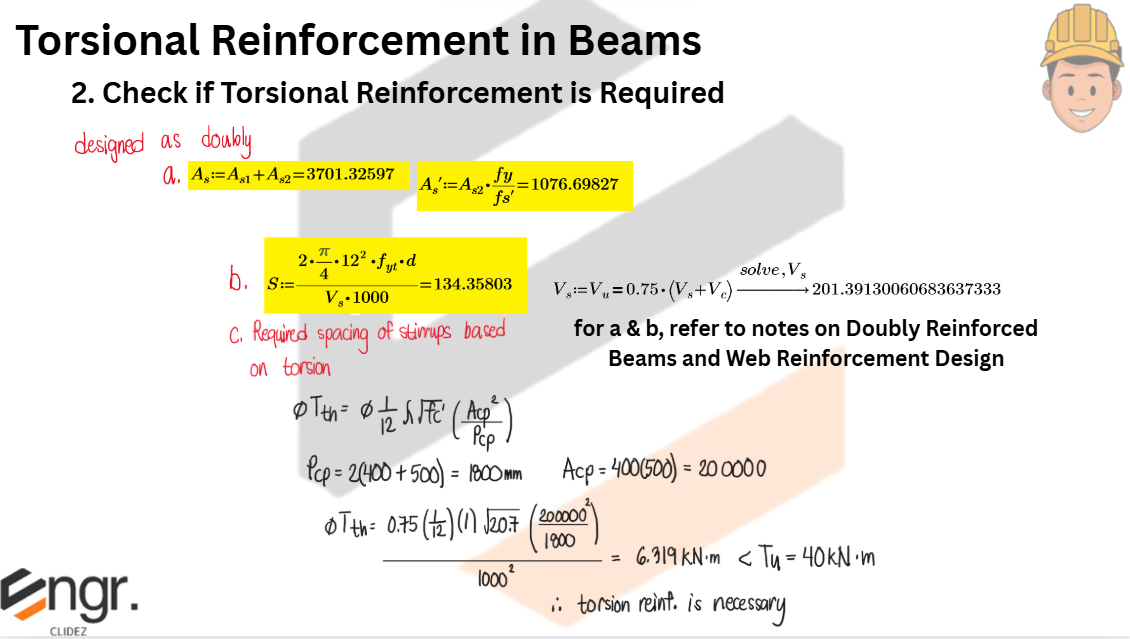 Torsional Reinforcement in Beams
2. Check if Torsional Reinforcement is Required
designed as doubly
a. A_s:=A_s1+A_s2=3701.32597
A_s':=A_s2·fy/fs'=1076.69827
b. S:=(2·π/4·12²·f_yt·d)/(V_s·1000)=134.35803
V_s:=V_u=0.75·(V_s+V_c) solve,V_s → 201.39130060683637333
for a & b, refer to notes on Doubly Reinforced
Beams and Web Reinforcement Design
c. Required spacing of stirrups based
on torsion
φTth = φ 1/12 λ√fc' (Acp²/Pcp)
Pcp = 2(400+500) = 1800mm
Acp = 400(500) = 200000
φTth = 0.75(1/12)(1)√20.7 (200000²/1800) / 1000² = 6.319 kN·m < Tu = 40kN·m
∴ torsion reinf. is necessary
Engr.
CLIDEZ